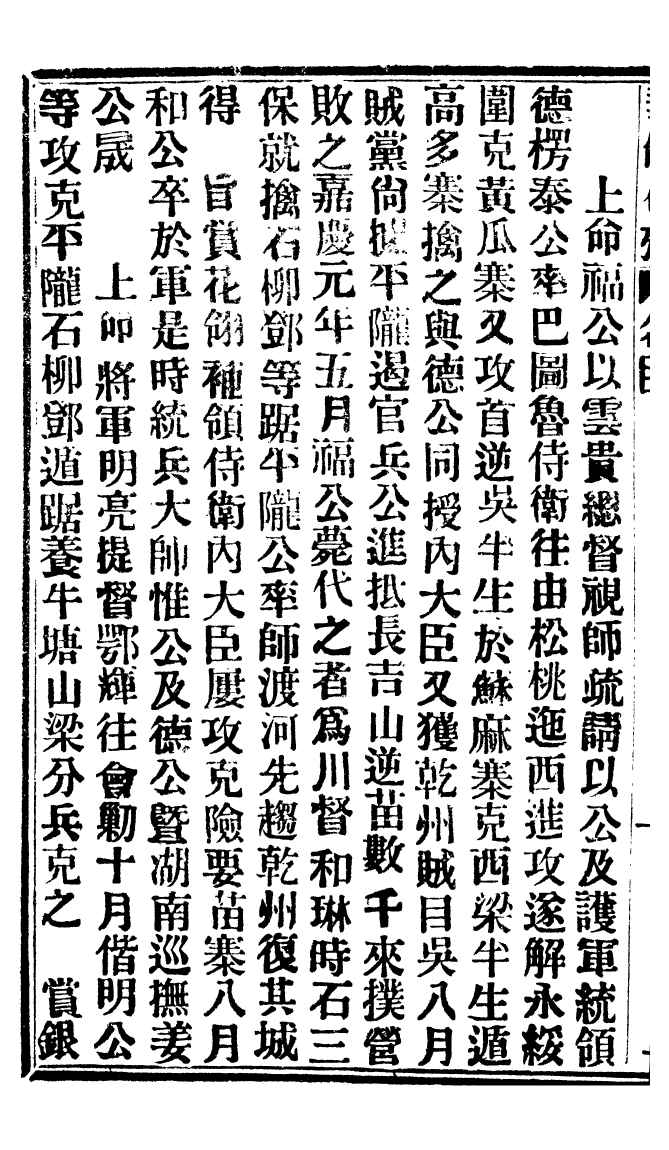 上命福公以雲貴總督視師疏請以公及護軍統領
德楞泰公率巴圖魯侍衛往由松桃迤西進攻遂解永綏
圍克黃瓜寨又攻首逆吳半生於蘇麻寨克西梁半生遁
高多寨擒之與德公同授內大臣又獲乾州賊目吳八月
賊黨尙據平隴遏官兵公進抵長吉山逆苗數千來撲營
敗之嘉慶元年五月福公薨代之者爲川督和琳時石三
保就擒石柳鄧等踞平隴公率師渡河先趨乾州復其城
得 旨賞花翎補領侍衛內大臣屢攻克險要苗寨八月
和公卒於軍是時統兵大帥惟公及德公暨湖南巡撫姜
公晟 上命將軍明亮提督鄂輝往會勦十月偕明公
等攻克平隴石柳鄧遁踞養牛塘山梁分兵克之 賞銀